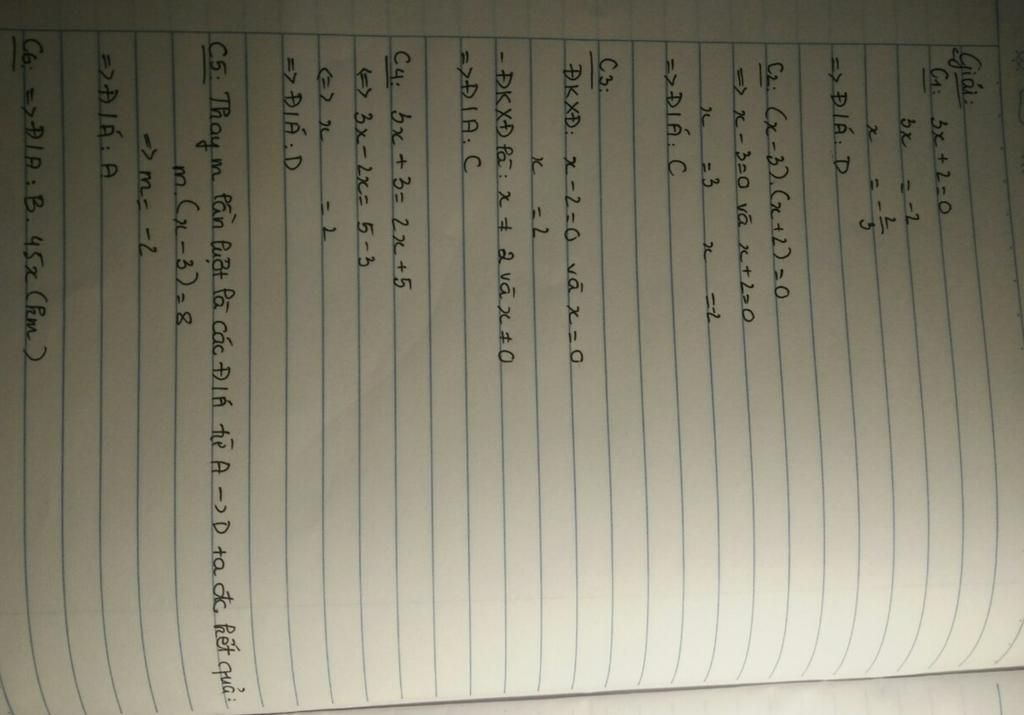 Giải:
C1: 3x + 2 = 0
3x = -2
x = -2/3
=> Đ/Á: D
C2: (x - 3).(x + 2) = 0
=> x - 3 = 0 và x + 2 = 0
x = 3 x = -2
=> Đ/Á: C
C3:
ĐKXĐ: x - 2 = 0 và x = 0
x = 2
- ĐKXĐ là: x ≠ 2 và x ≠ 0
=> Đ/A: C
C4: 3x + 3 = 2x + 5
<=> 3x - 2x = 5 - 3
<=> x = 2
=> Đ/Á: D
C5: Thay m lần lượt là các Đ/Á từ A -> D ta đc kết quả:
m.(x - 3) = 8
=> m = -2
=> Đ/Á: A
C6: => Đ/A: B. 45x (km)